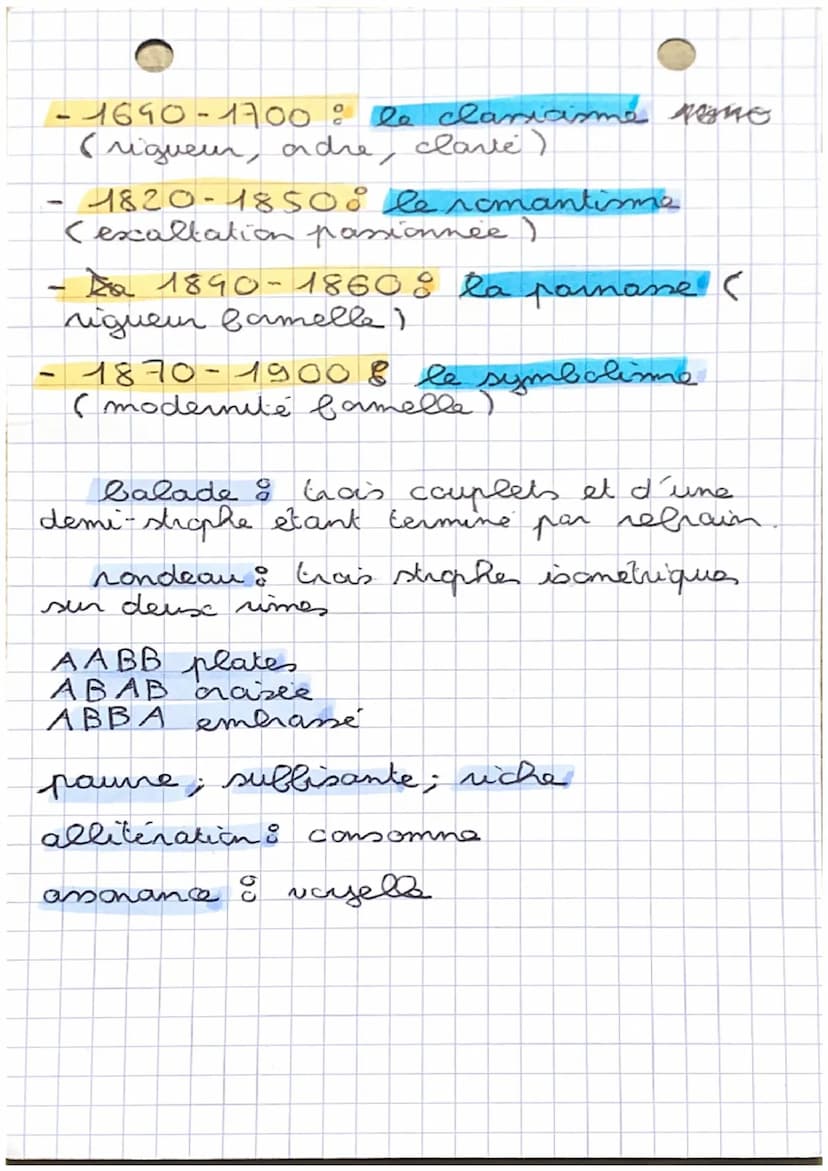 - 1690-1700 : le classicisme
(rigueur, ordre, clarté)
- 1820-1850 : le romantisme
(exaltation passionnée)
- 1890-1860 : la parnasse (
rigueur formelle)
- 1870-1900 : le symbolisme
(modernité formelle)
balade : trois couplets et d'une
demi-strophe étant terminé par refrain.
rondeau : trois strophes isométriques
sur deux rimes
AABB plates
ABAB croisée
ABBA embrassé
pauvre ; suffisante ; riche
allitération : consonne
assonance : voyelle